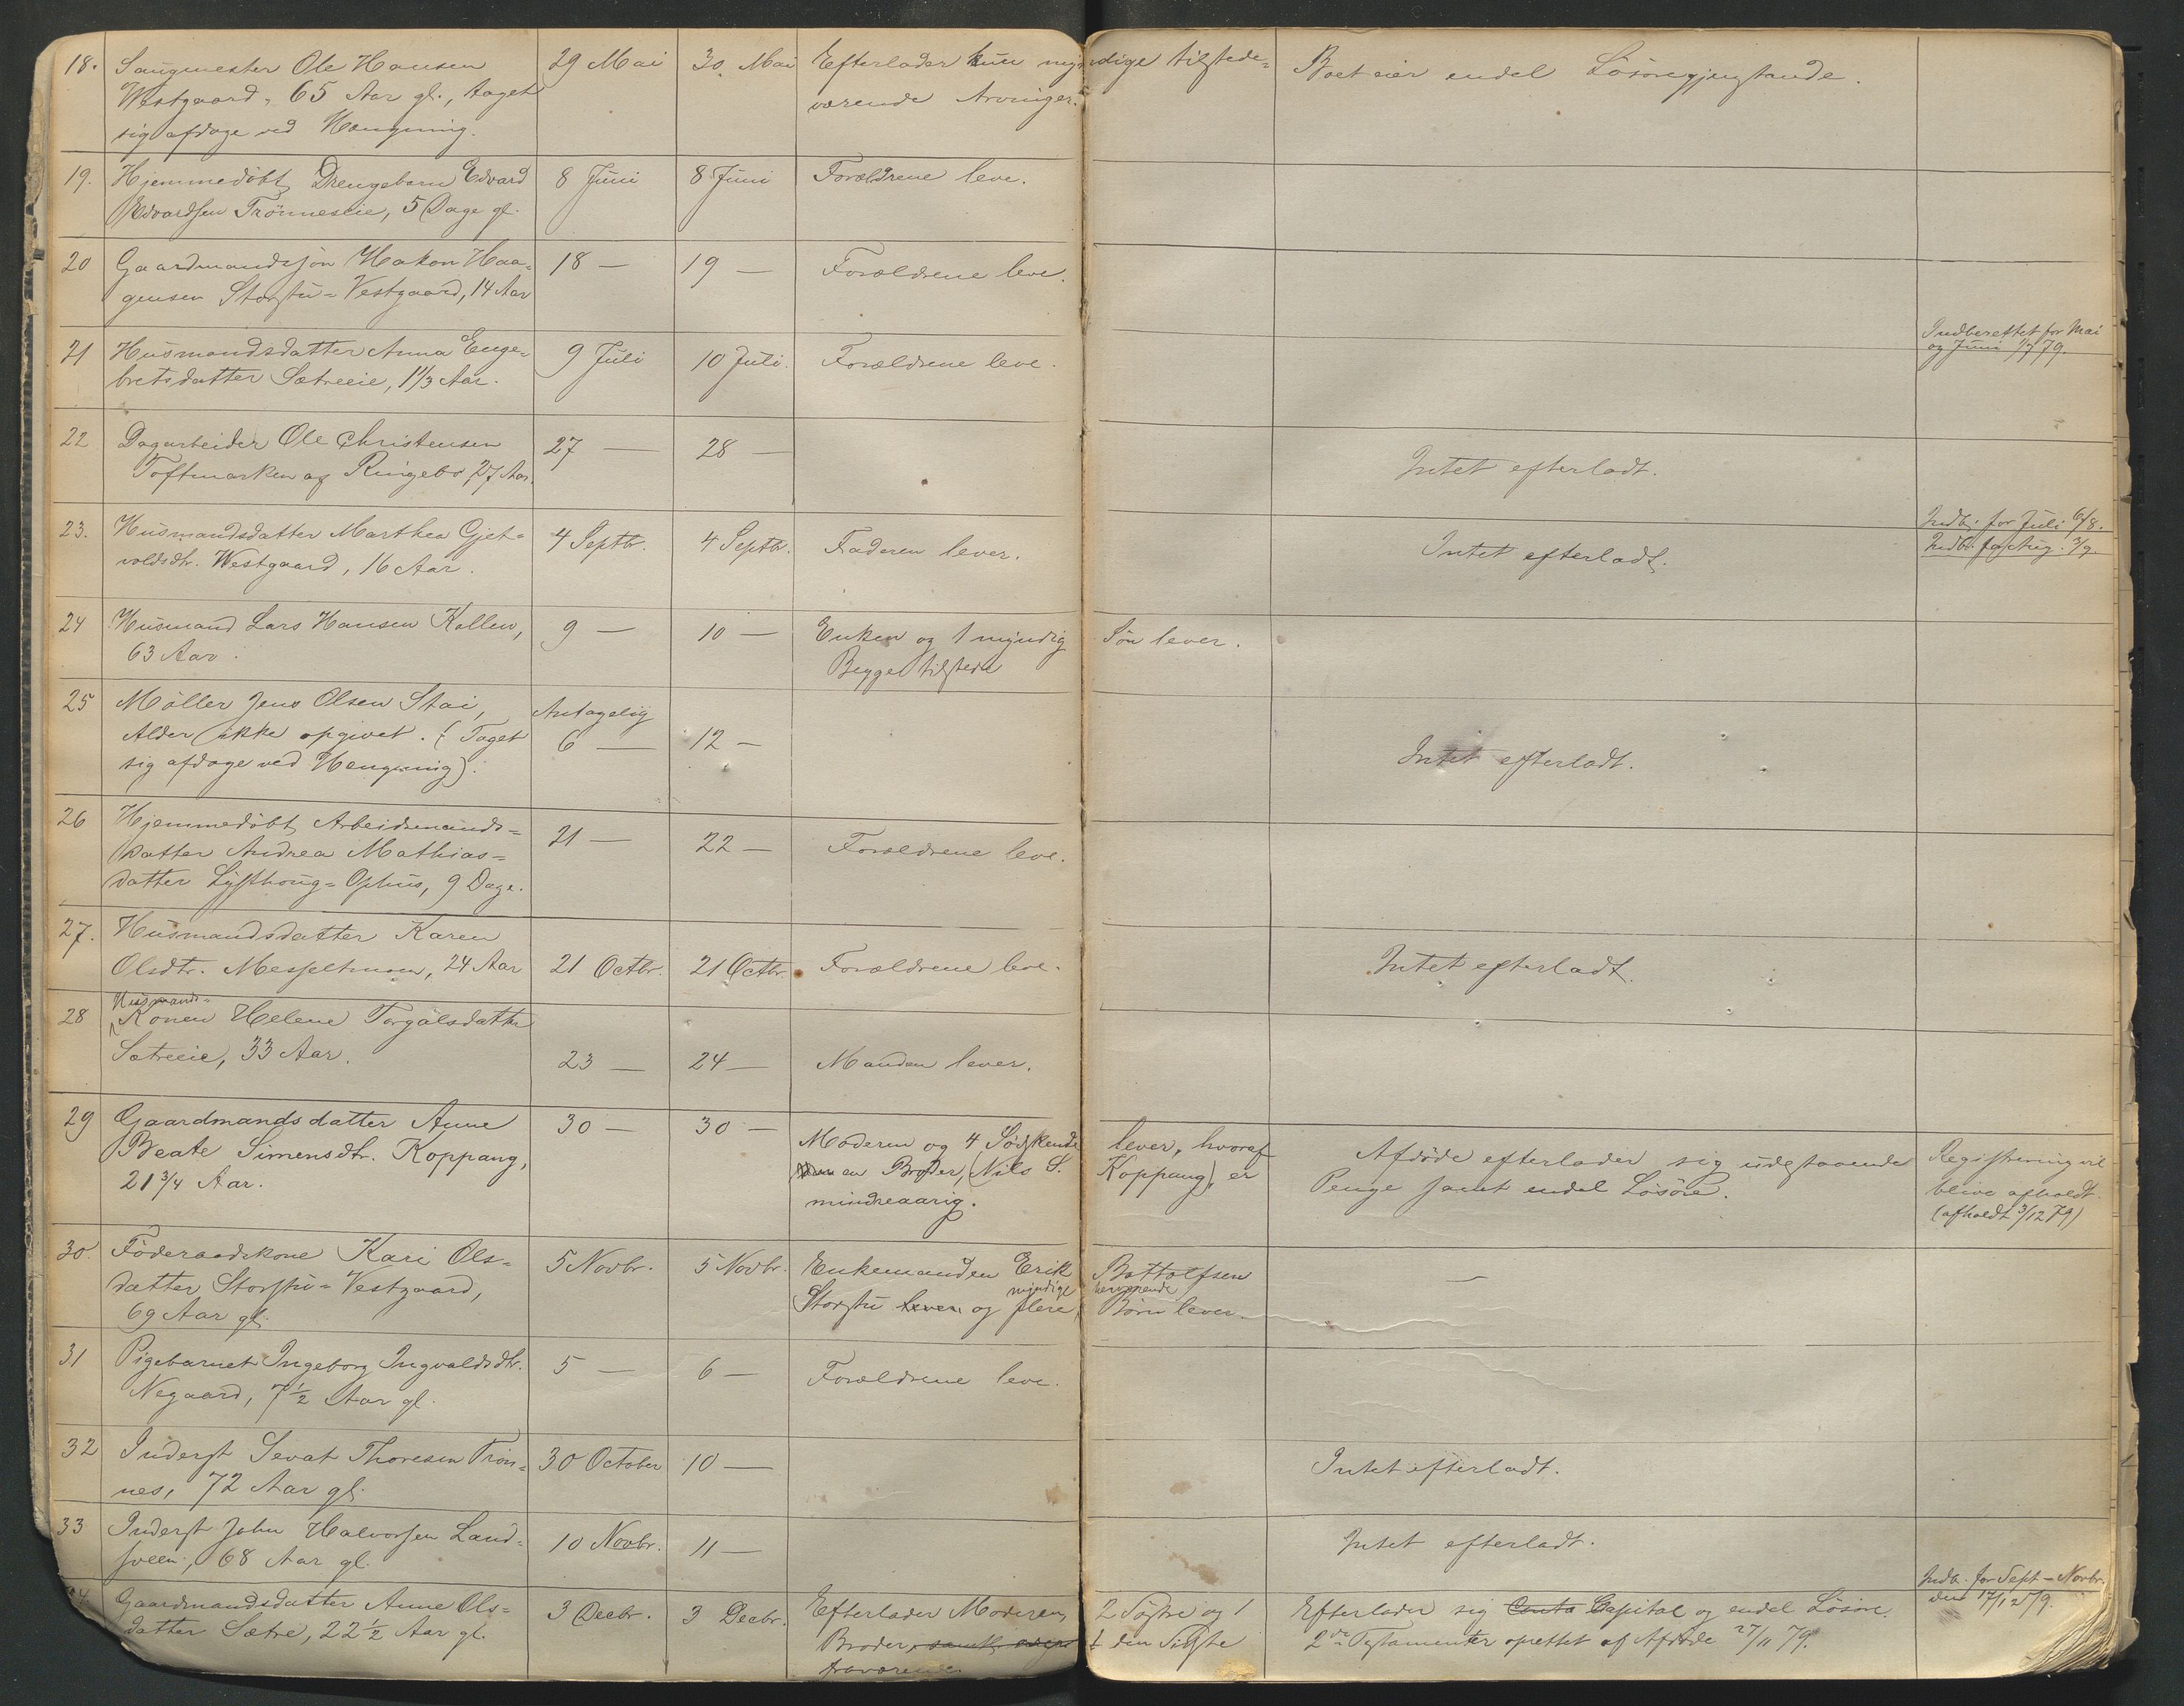 18. Saugmester Ole Hansen 29 Mai 30 Mai Efterlader kun myndige tilstede= Boet eier endel Løsøregjenstande.
Westgaard, 65 Aar gl., taget værende Arvinger.
sig afdage ved Hængning.
19. Hjemmedøbt Drengebarn Edvard 8 Juni 8 Juni Forældrene leve.
Edvardsen Trønneseie, 5 Dage gl.
20 Gaardmandssøn Hakon Haa= 18 — 19 — Forældrene leve.
gensen Storstu=Vestgaard, 14 Aar
Indberettet for Mai
og Juni 1/7 79.
21 Husmandsdatter Anna Enge= 9 Juli 10 Juli. Forældrene leve.
bretsdatter Sætreeie, 1 1/3 Aar.
22 Dagarbeider Ole Christensen 27 — 28 —
Toftmarken af Ringebo 27 Aar. Intet efterladt.
Indb. for Juli 6/8.
23. Husmandsdatter Marthea Gjet= 4 Septbr. 4 Septbr. Faderen lever. Intet efterladt. Indb. for Aug. 3/9.
voldsdtr. Westgaard, 16 Aar.
24 Husmand Lars Hansen Kollen, 9 — 10 — Enken og 1 myndig Søn lever.
63 Aar. Begge tilstede
25 Møller Jens Olsen Stai, Antagelig
Alder ikke opgivet. (Taget 6 — 12 —
sig afdage ved Hængning). Intet efterladt.
26 Hjemmedøbt Arbeidsmands=
datter Andrea Mathias= 21 — 22 — Forældrene leve.
datter Lysthoug=Ophus, 9 Dage.
27. Husmandsdatter Karen
Olsdtr. Messeltmoen, 24 Aar 21 Octbr. 21 Octbr. Forældrene leve. Intet efterladt.
Husmands=
28 Konen Helene Torgalsdatter
Sætreeie, 33 Aar. 23 — 24 — Manden lever.
29 Gaardmandsdatter Anne 30 — 30 — Moderen og 4 Sødskende lever, hvoraf Afdøde efterlader sig udestaaende Registrering vil
Beate Simensdtr. Koppang, en Broder, (Nils S. Koppang), er Penge samt endel Løsøre. blive afholdt.
21 3/4 Aar. mindreaarig. (afholdt 3/12 79)
30. Føderaadskone Kari Ols= 5 Novbr. 5 Novbr. Enkemanden Erik Bottolfsen —
datter Storstu=Vestgaard, myndige herværende
69 Aar gl. Storstu lever og flere Børn lever.
31 Pigebarnet Ingeborg Ingvaldsdtr. 5 — 6 — Forældrene leve.
Negaard, 7 1/2 Aar gl.
32 Inderst Sevat Thoresen Trøn= 30 October 10 — Intet efterladt.
nes, 72 Aar gl.
33 Inderst John Halvorsen Land= 10 Novbr. 11 — Intet efterladt.
sveen, 68 Aar gl.
Indb. for Sept - Novbr.
den 17/12 79.
34 Gaardmandsdatter Anne Ols= 3 Decbr. 3 Decbr. Efterlader Moderen, 2 Søstre og 1 Efterlader sig Conto Capital og endel Løsøre.
datter Sætre, 22 1/2 Aar gl. Broder, samtl. den Sidste 2de Testamenter oprettet af Afdøde 27/11 79.
fraværende.